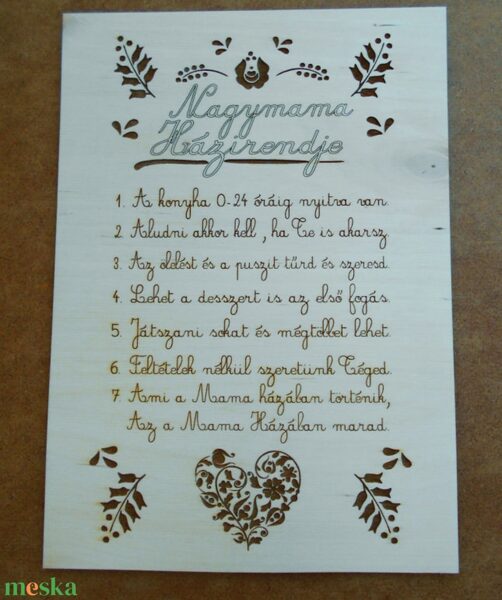 Nagymama
Házirendje
1. A konyha 0-24 óráig nyitva van.
2 Aludni akkor kell, ha Te is akarsz.
3. Az ölelést és a puszit tűrd és szeresd.
4. Lehet a desszert is az első fogás.
5. Játszani sokat és mégtöbbet lehet.
6. Feltételek nélkül szeretünk Téged.
7 Ami a Mama házában történik,
Az a Mama Házában marad.
meska